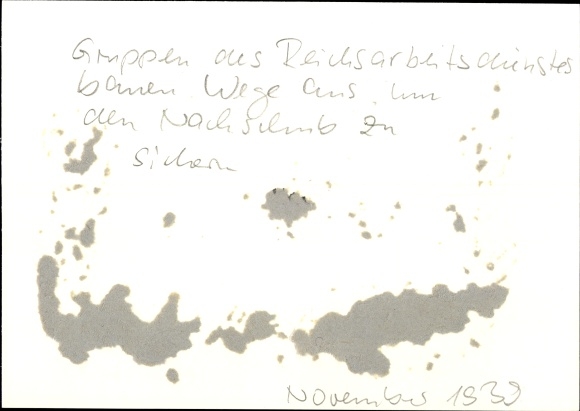 Gruppen des Reichsarbeitsdienstes
bauen Wege aus um
den Nachschub zu
sichern
November 1939